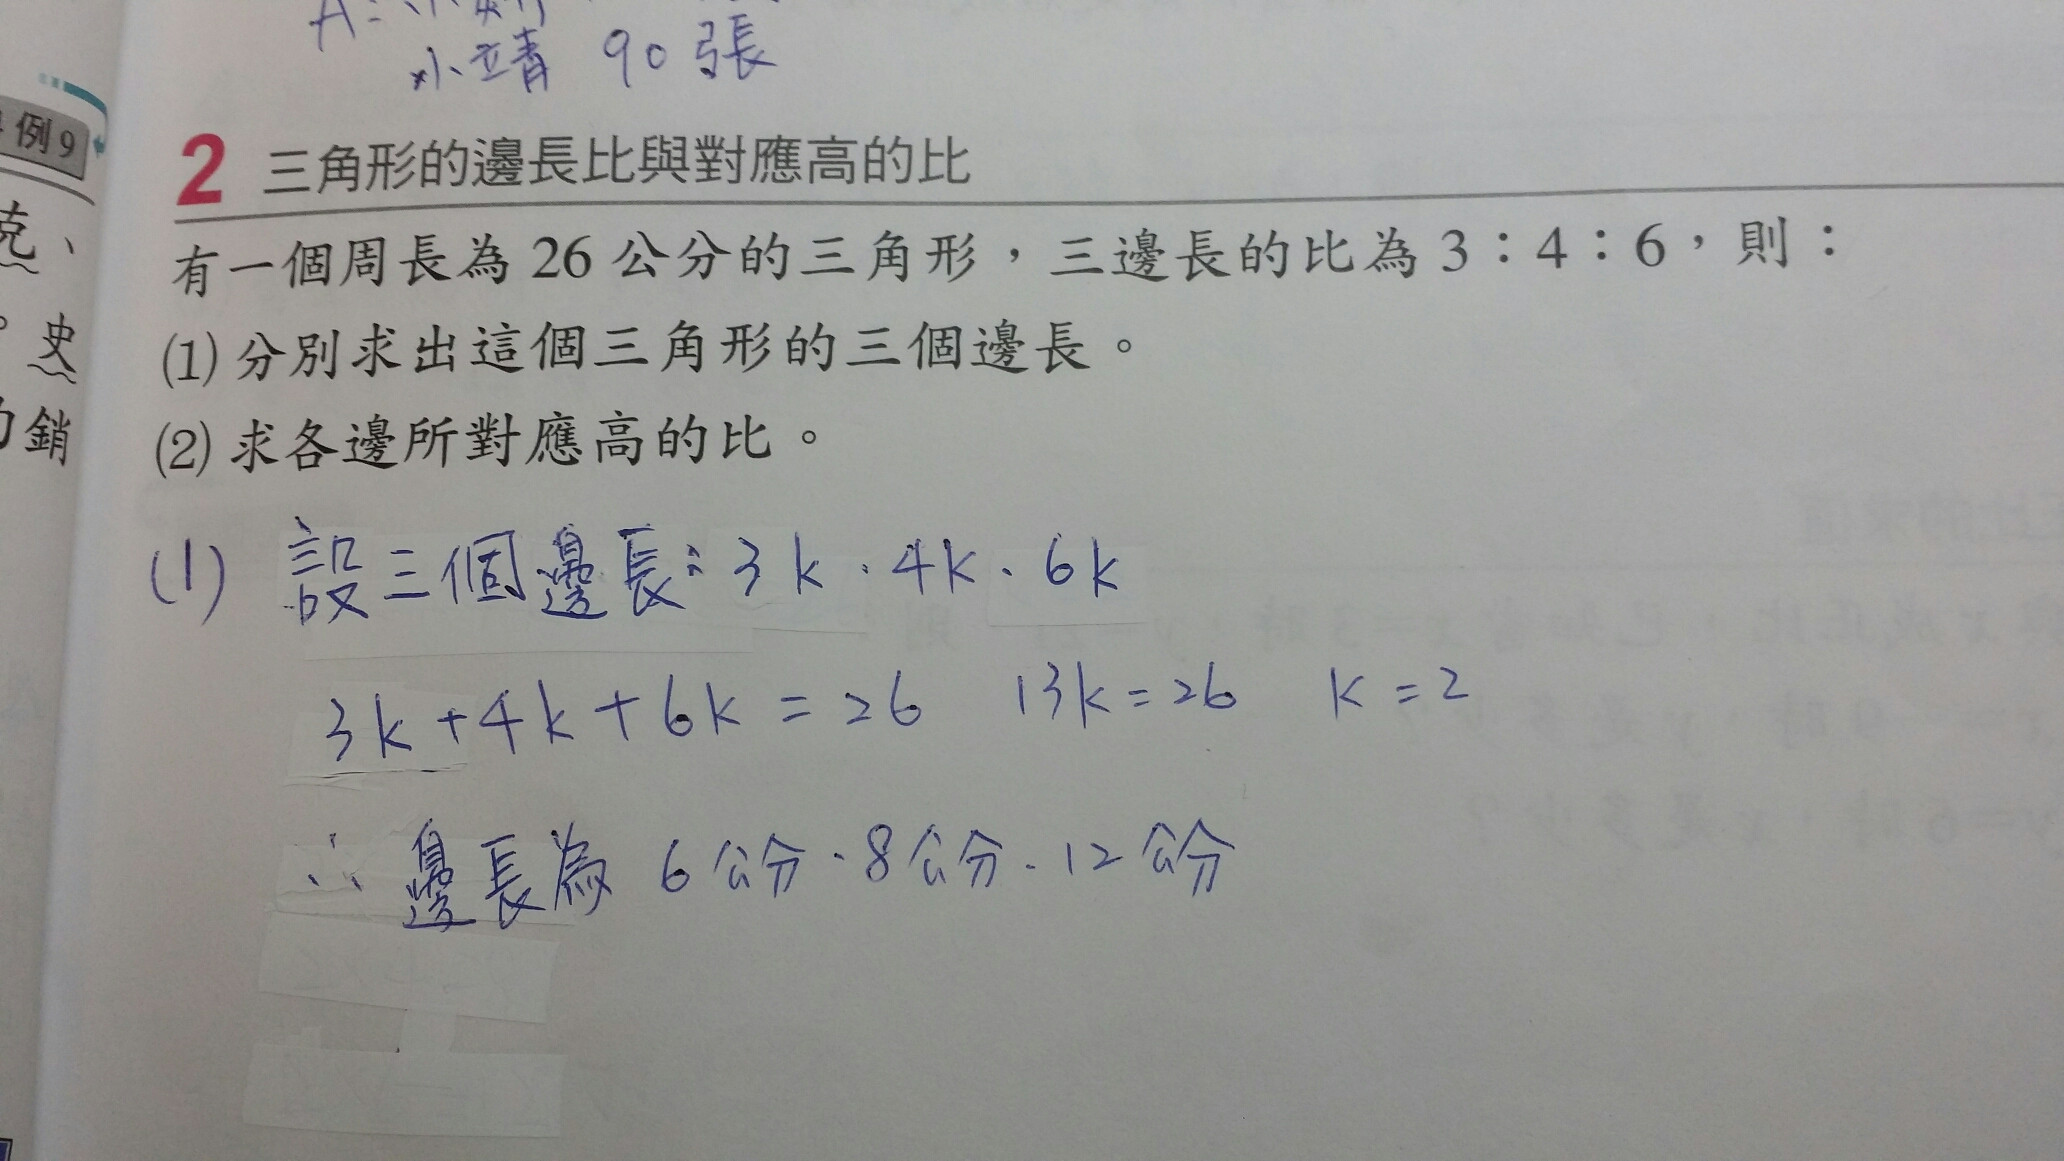 小靖 90張
例9
2 三角形的邊長比與對應高的比
克、
有一個周長為 26 公分的三角形，三邊長的比為 3：4：6，則：
。史
(1) 分別求出這個三角形的三個邊長。
銷
(2) 求各邊所對應高的比。
(1) 設三個邊長：3k、4k、6k
3k+4k+6k=26 13k=26 k=2
∴ 邊長為 6公分、8公分、12公分